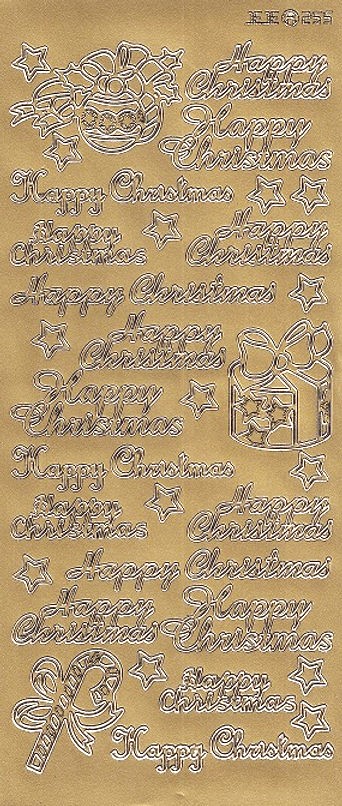 JEJE 255
Happy
Christmas
Happy
Christmas
Happy Christmas
Happy
Christmas
Happy
Christmas
Happy Christmas
Happy
Christmas
Happy
Christmas
Happy Christmas
Happy
Christmas
Happy
Christmas
Happy Christmas
Happy
Christmas
Happy
Christmas
Happy
Christmas
Happy Christmas